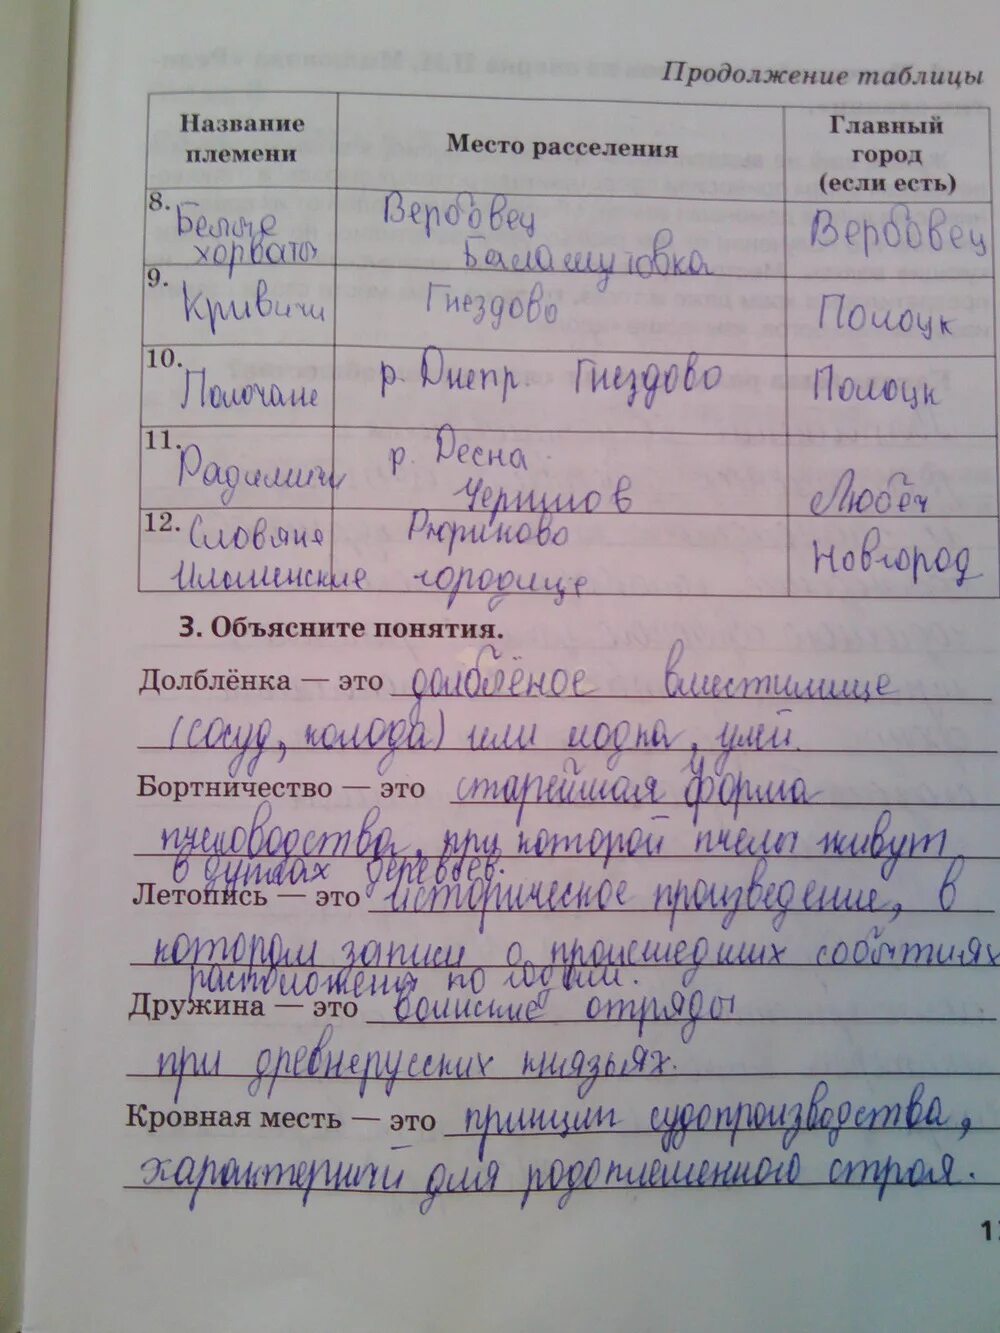 Продолжение таблицы
Название племени | Место расселения | Главный город (если есть)
8. Белые хорваты | Вербовец Баламутовка | Вербовец
9. Кривичи | Гнездово | Полоцк
10. Полочане | р. Днепр. Гнездово | Полоцк
11. Радимичи | р. Десна. Чернигов | Любеч
12. Словяне Ильменские | Рюриково городище | Новгород
3. Объясните понятия.
Долблёнка — это долблёное вместилище
(сосуд, колода) или лодка, улей.
Бортничество — это старейшая форма
пчеловодства, при которой пчелы живут
в дуплах деревьев.
Летопись — это историческое произведение, в
котором записи о происшедших событиях
расположены по годам.
Дружина — это воинские отряды
при древнерусских князьях.
Кровная месть — это принцип судопроизводства,
характерный для родоплеменного строя.